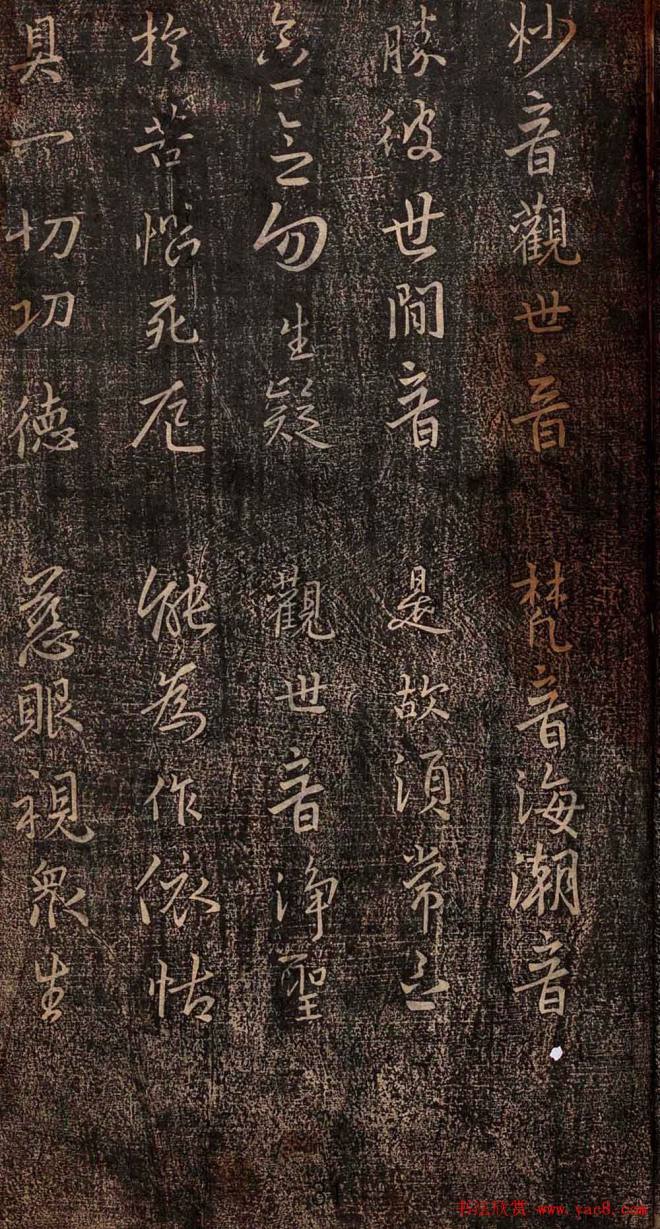 妙音觀世音 梵音海潮音
勝彼世間音 是故須常念
念念勿生疑 觀世音淨聖
於苦惱死厄 能為作依怙
具一切功德 慈眼視眾生
书法欣赏 www.yac8.com